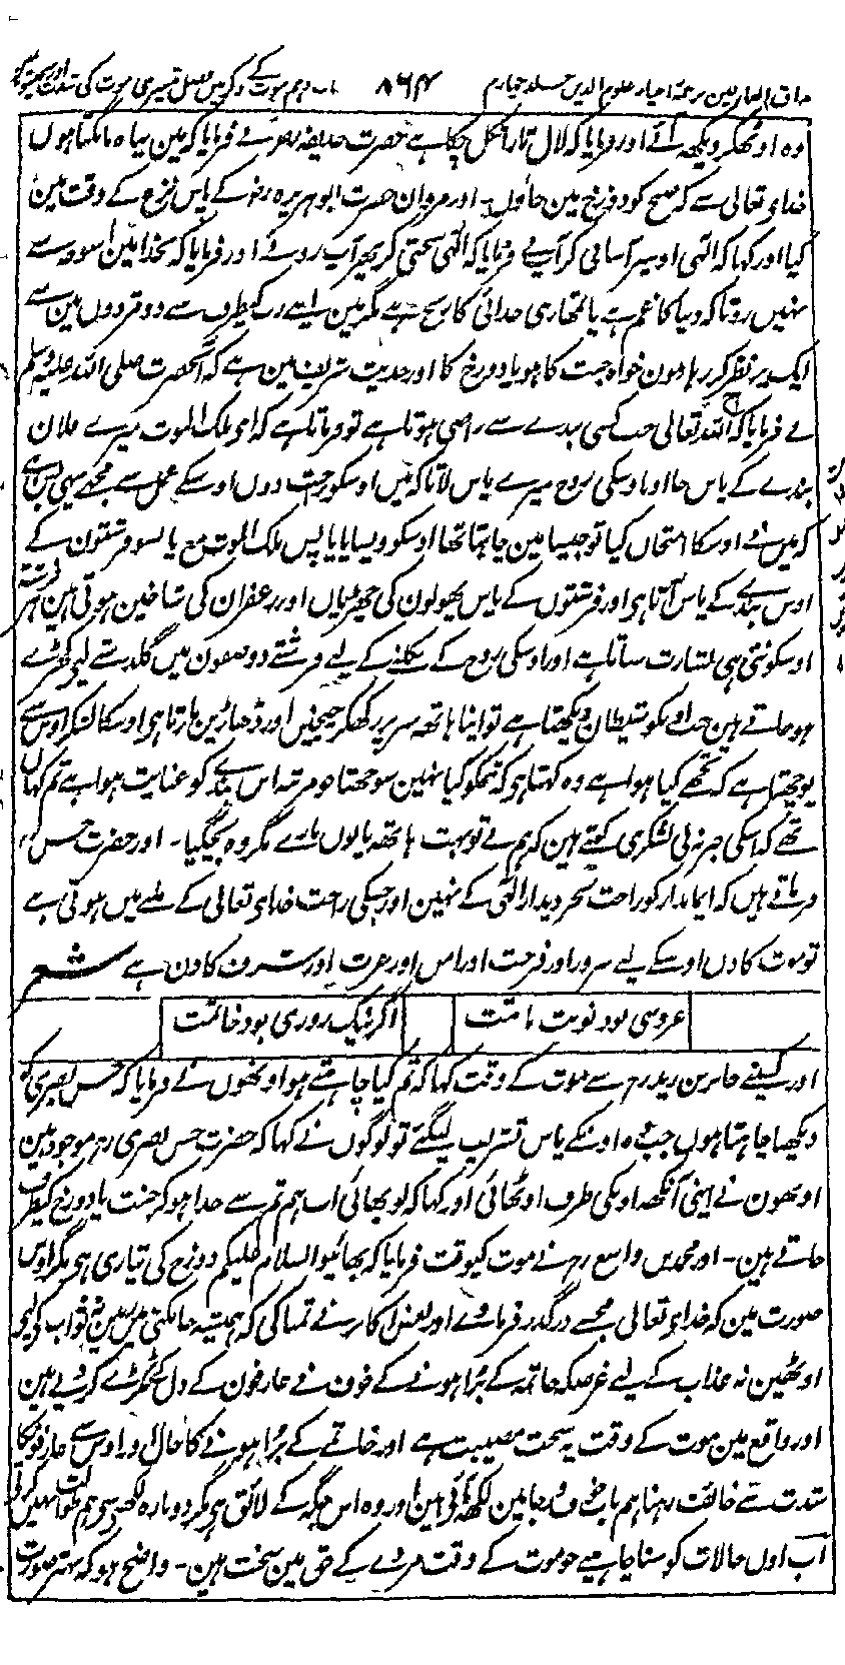 مذاق العارفین ترجمۂ احیاء علوم الدین جلد چہارم ۸۶۴ باب دہم موت کے ذکر میں فصل تیسری موت کی شدت اور سختیوں
وہ اوٹھکر دیکھ آئے اور فرمایا کہ لال تارا نکل چکا ہے حضرت حذیفہ رضو نے فرمایا کہ مین پناہ مانگتا ہوں
خداے تعالی سے کہ صبح کو دوزخ مین جاؤں۔ اور مروان حضرت ابو ہریرہ رضو کے پاس نزع کے وقت مین
گیا اور کہا کہ الٰہی اوسپر آسانی کر آپنے فرمایا کہ الٰہی سختی کر پھر آپ روئے اور فرمایا کہ بخدا مین اسوجہ سے
نہیں روتا کہ دنیا کا غم ہے یا تمھاری جدائی کا رنج ہے مگر مین اپنے رب کیطرف سے دو مژدوں مین سے
ایک پر نظر کر رہا ہون خواہ جنت کا ہو یا دوزخ کا اور حدیث شریف مین ہے کہ آنحضرت صلی اللہ علیہ وسلم
نے فرمایا کہ اللہ تعالی جب کسی بندے سے راضی ہوتا ہے تو فرماتا ہے کہ اے ملک الموت میرے فلان
بندے کے پاس جا اور اوسکی روح میرے پاس لا تاکہ میں اوسکو راحت دوں اوسکے عمل سے مجھے یہی بس ہے
کہ میں نے اوسکا امتحان کیا تو جیسا مین چاہتا تھا اوسکو ویسا پایا پس ملک الموت مع پانسو فرشتون کے
اوس بندے کے پاس آتا ہی اور فرشتوں کے پاس پھولون کی چھڑیاں اور زعفران کی شاخین ہوتی ہین ہر فرشتہ
اوسکو نئی ہی بشارت سناتا ہے اور اوسکی روح کے نکلنے کے لیے فرشتے دو صفون میں گلدستے لیے کھڑے
ہو جاتے ہین جب اونکو شیطان دیکھتا ہے تو اپنا ہاتھ سر پر رکھکر چیخیں اور ڈھاڑین مارتا ہی اوسکا لشکر اوس سے
پوچھتا ہے کہ تجھے کیا ہوا ہے وہ کہتا ہی کہ تمکو کیا نہین سوجھتا جو مرتبہ اس بندے کو عنایت ہوا ہے تم کہاں
تھے کہ اسکی خبر نہ لی لشکری کہتے ہین کہ ہم نے تو بہت ہاتھ پانوں مارے مگر وہ بچگیا۔ اور حضرت حسن رح
فرماتے ہیں کہ ایماندار کو راحت بجز دیدار الٰہی کے نہین اور جسکی راحت خداے تعالی کے ملنے میں ہوتی ہے
تو موت کا دن اوسکے لیے سرور اور فرحت اور امن اور عزت اور شرف کا دن ہے شعر
عروسی بود نوبت ماتمت اگر نیک روزی بود خاتمت
اور کسینے جابر بن زید رح سے موت کے وقت کہا کہ تم کیا چاہتے ہو اونھوں نے فرمایا کہ حسن بصری کو
دیکھا چاہتا ہوں جب وہ اونکے پاس تشریف لیگئے تو لوگوں نے کہا کہ حضرت حسن بصری رہ موجود ہین
اونھون نے اپنی آنکھ اونکی طرف اوٹھائی اور کہا کہ لو بھائی اب ہم تم سے جدا ہو کر جنت یا دوزخ کیطرف
جاتے ہین۔ اور محمد بن واسع رح نے موت کیوقت فرمایا کہ بھائیو السلام علیکم دوزخ کی تیاری ہی مگر اوس
صورت مین کہ خداے تعالی مجھسے درگذر فرماوے اور بعض اکابر نے تمنا کی کہ ہمیشہ جانکنی مین رہین نہ ثواب کے لیے
اوٹھین نہ عذاب کے لیے غرضکہ خاتمہ کے بُرا ہونے کے خوف نے عارفون کے دل ٹکڑے کر دیے ہین
اور واقع مین موت کے وقت یہ سخت مصیبت ہے اور خاتمے کے بُرا ہونے کا حال اور اوس سے عارفونکا
شدت سے خائف رہنا ہم باب خوف و رجا مین لکھ آئے ہین اور وہ اس جگہ کے لائق ہی مگر دوبارہ لکھنے سے ہم طوالت نہیں کرتے
اب اون حالات کو سننا چاہیے جو موت کے وقت مردے کے حق مین سخت ہین۔ واضح ہو کہ بہتر صورت